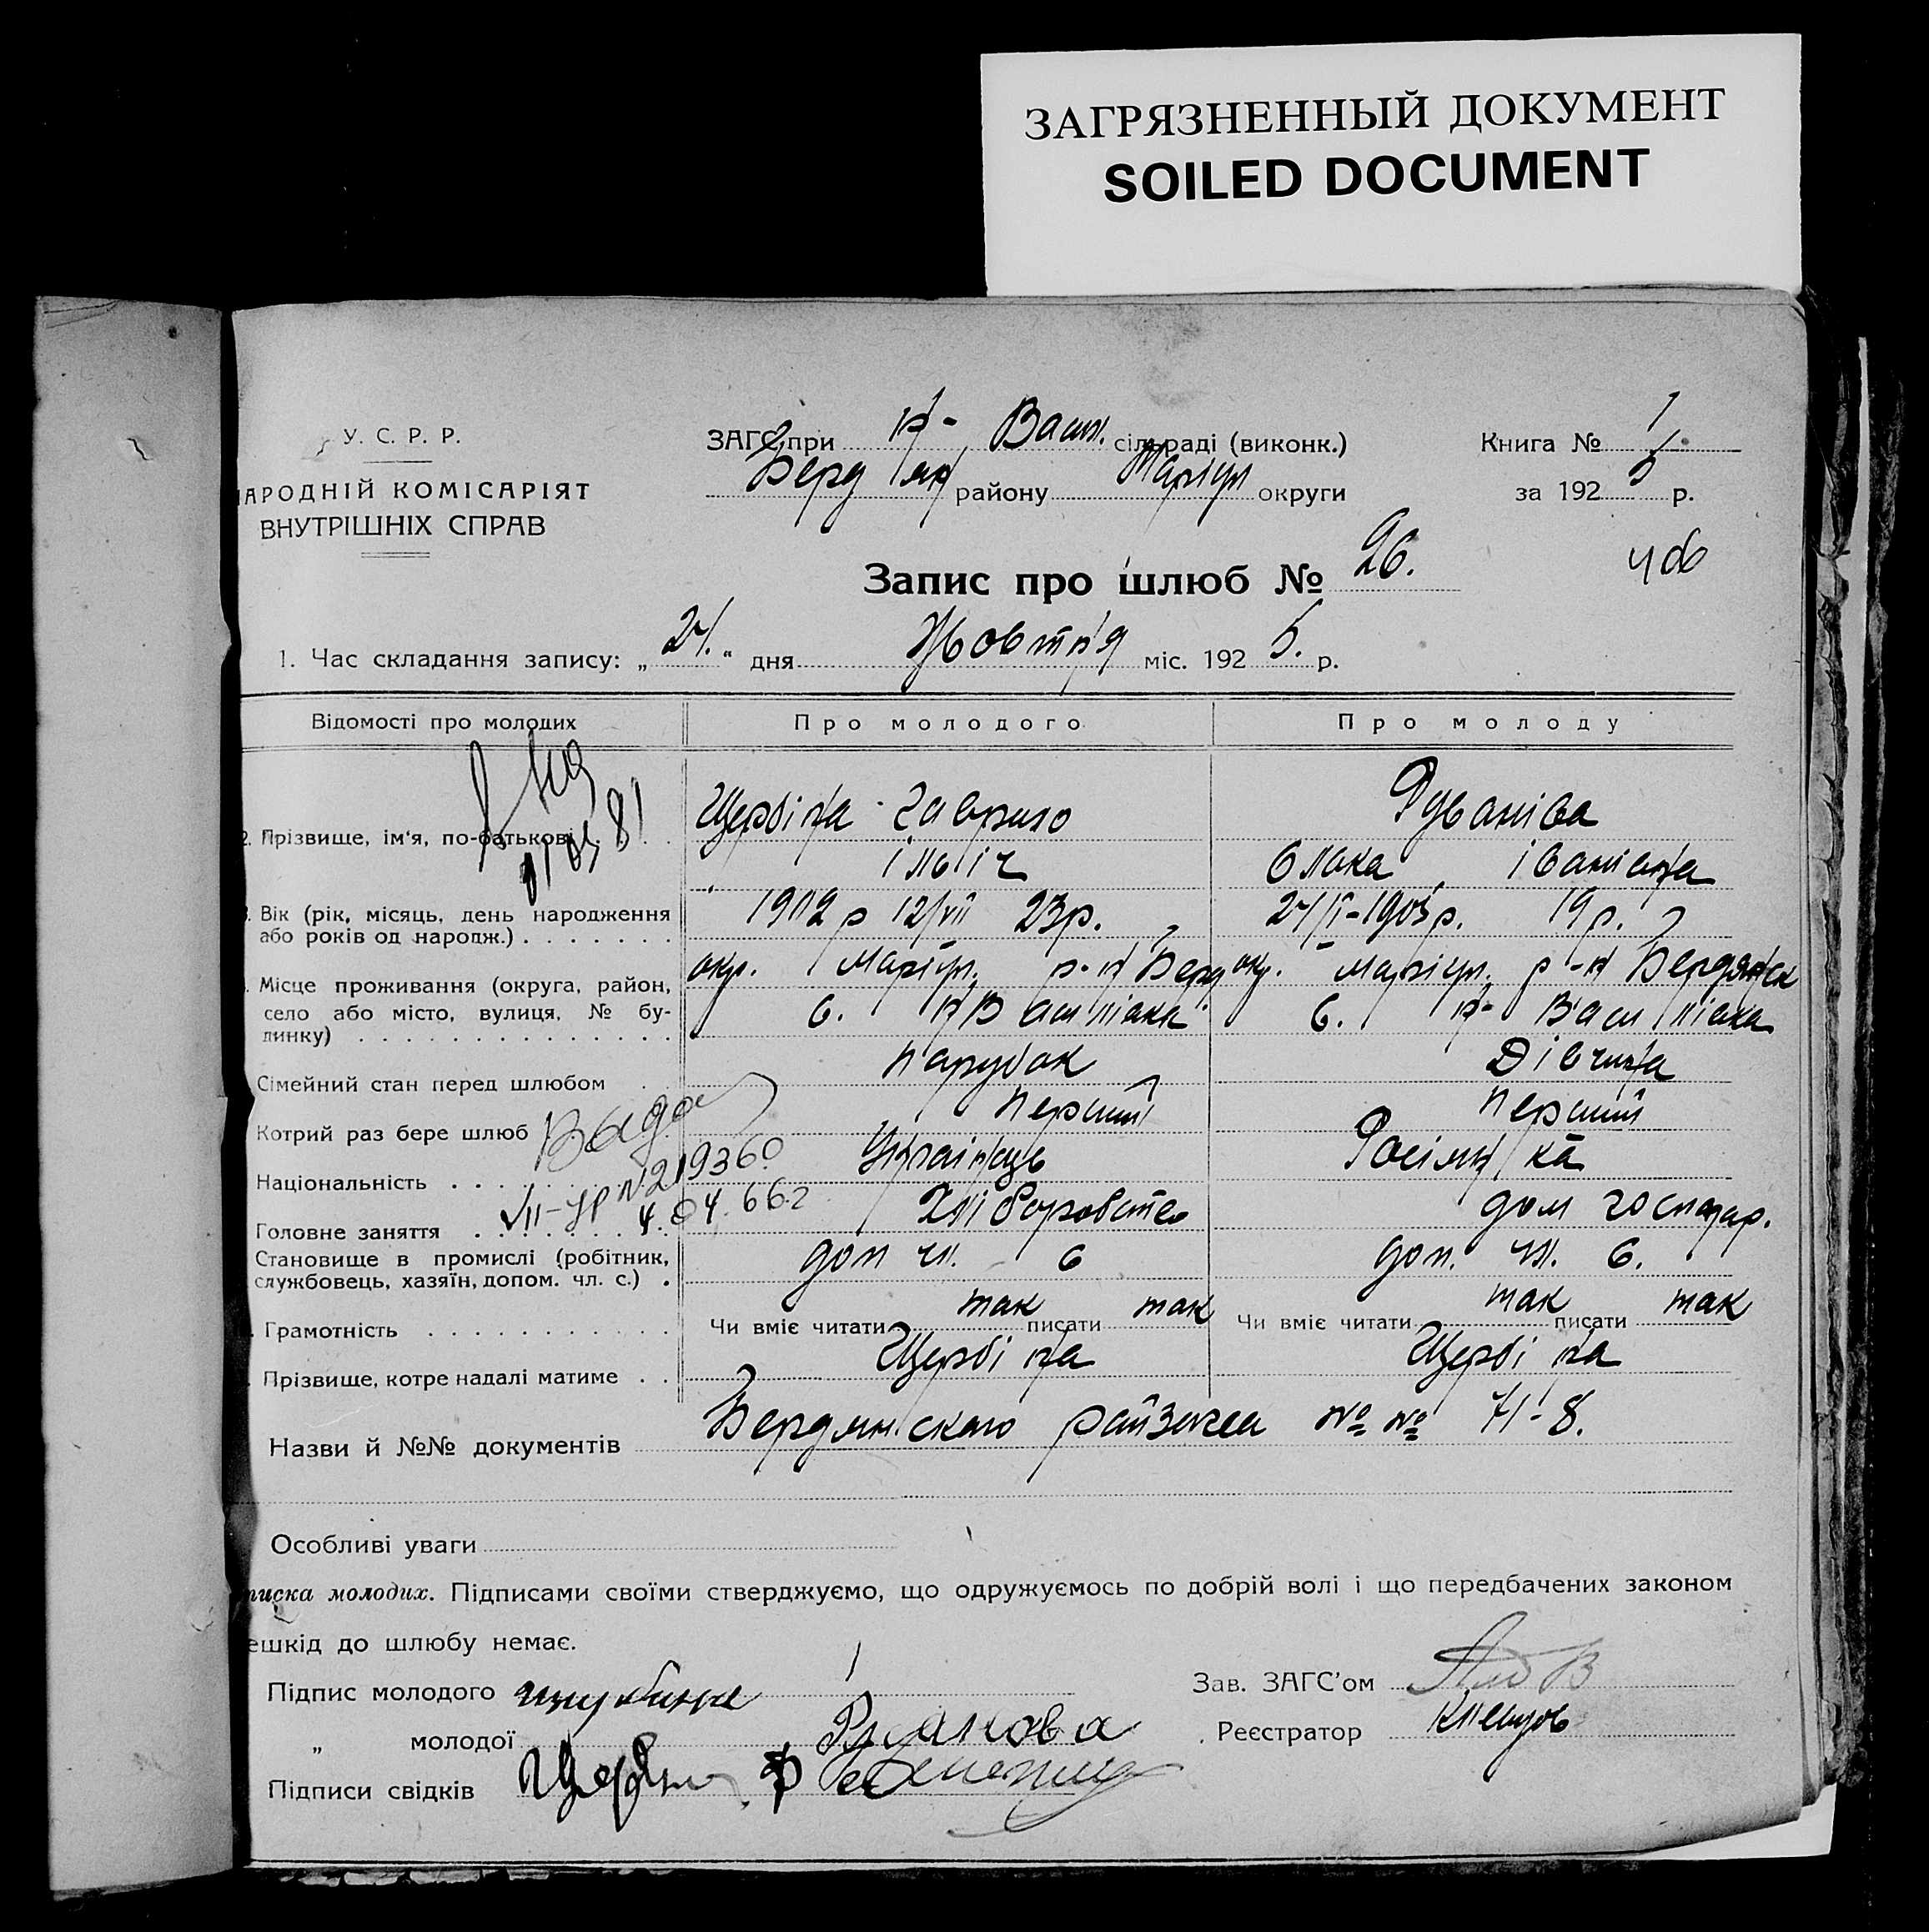 ЗАГРЯЗНЕННЫЙ ДОКУМЕНТ
SOILED DOCUMENT
У. С. Р. Р.
АРОДНІЙ КОМІСАРІЯТ
ВНУТРІШНІХ СПРАВ
ЗАГС при н- Васил. сільраді (виконк.)
Берд району Маріуп округи
Книга № 1
за 192 5 р.
Запис про шлюб № 26.
1. Час складання запису: „ “ дня Жовтня міс. 192 5. р.
Відомості про молодих
Про молодого
Про молоду
2. Прізвище, ім'я, по-батькові
Щербіна Гаврило
ільіч
Рубанова
іванівна
81
3. Вік (рік, місяць, день народження
або років од народж.)
1902 р 12/VII 23р.
19р.
Місце проживання (округа, район,
село або місто, вулиця, № бу-
динку)
окр. Маріуп. р-н Берд
с. н Василівка
окр. Маріуп. р-н Бердянск
с. н- Василівка
Сімейний стан перед шлюбом
Парубок
Дівчина
Котрий раз бере шлюб
Перший
Перший
Національність
Українець
Росіянка
219360
Головне заняття
Хліборобство
дом господар.
4. 04. 66 г
Становище в промислі (робітник,
службовець, хазяїн, допом. чл. с.)
доп чл. с
доп. чл. с.
Грамотність
Чи вміє читати так писати так
Чи вміє читати так писати так
Прізвище, котре надалі матиме
Щербіна
Щербіна
Назви й №№ документів Бердянского №№ 71-8.
Особливі уваги
писка молодих. Підписами своїми стверджуємо, що одружуємось по добрій волі і що передбачених законом
ешкід до шлюбу немає.
Підпис молодого
Зав. ЗАГС'ом
„ молодої
Реєстратор
Підписи свідків